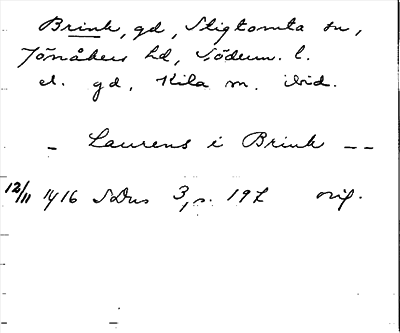 Brink, gd, Stigtomta sn,
Jönåkers hd, Söderm. l.
el. gd, Kila sn. ibid.
– Laurens i Brink – –
12/11 1416 SDns 3, s. 197 orig.